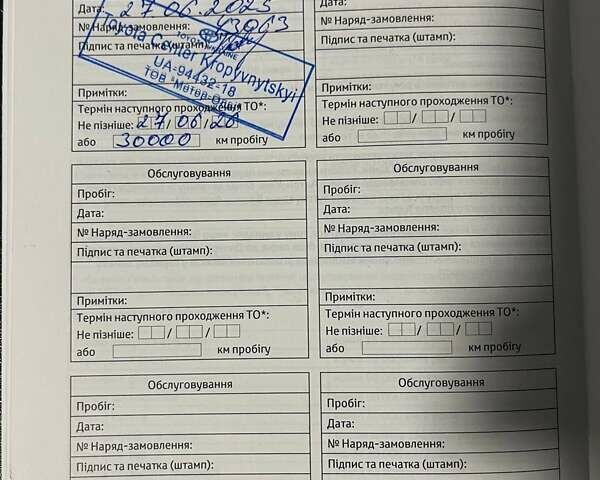 Дата: 27.06.2025
№ Наряд-замовлення: 43063
Підпис та печатка (штамп):
TOYOTA
UKRAINE
Toyota Center Kropyvnytskyi
UA-94432-18
ТОВ
Примітки:
Термін наступного проходження ТО*:
Не пізніше: 27/06/26
або 30000 км пробігу
Дата:
№ Наряд-замовлення:
Підпис та печатка (штамп):
Примітки:
Термін наступного проходження ТО*:
Не пізніше: / /
або км пробігу
Обслуговування
Пробіг:
Дата:
№ Наряд-замовлення:
Підпис та печатка (штамп):
Примітки:
Термін наступного проходження ТО*:
Не пізніше: / /
або км пробігу
Обслуговування
Пробіг:
Дата:
№ Наряд-замовлення:
Підпис та печатка (штамп):
Примітки:
Термін наступного проходження ТО*:
Не пізніше: / /
або км пробігу
Обслуговування
Пробіг:
Дата:
№ Наряд-замовлення:
Підпис та печатка (штамп):
Обслуговування
Пробіг:
Дата:
№ Наряд-замовлення:
Підпис та печатка (штамп):